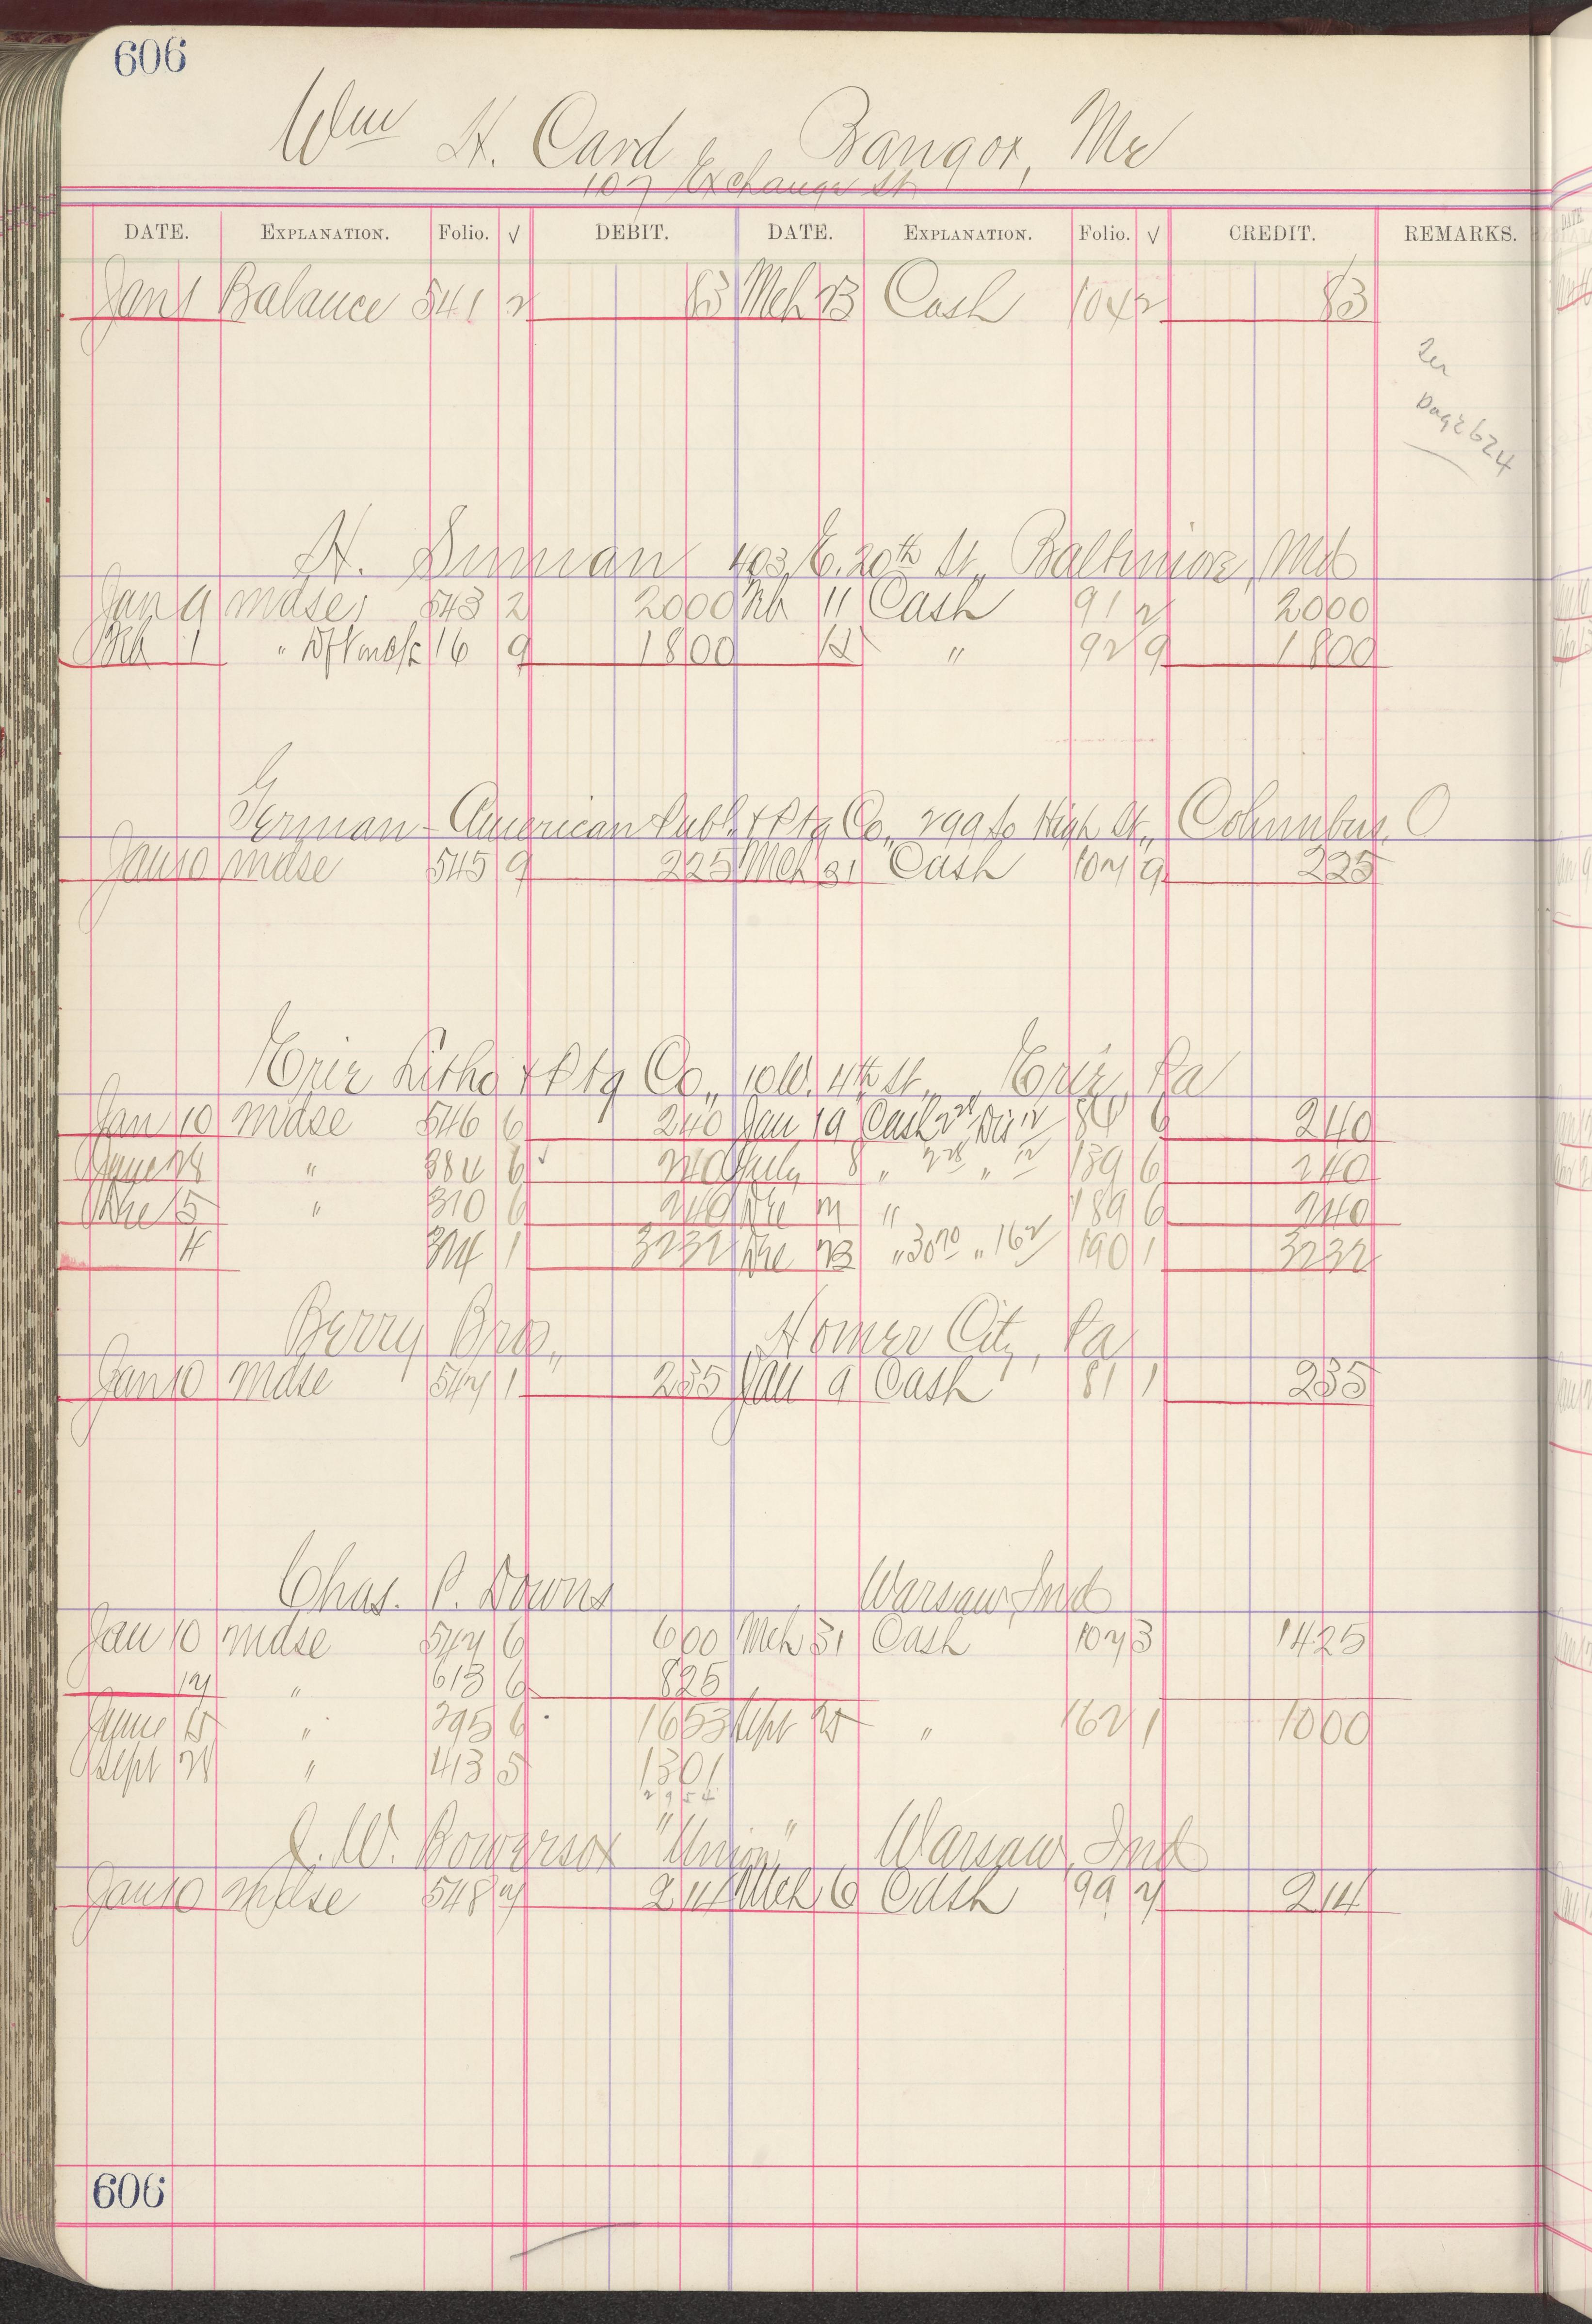 606
Wm H. Card Bangor, Me
107 Exchange St
DATE. EXPLANATION. Folio. √ DEBIT. DATE. EXPLANATION. Folio. √ CREDIT. REMARKS.
Jan 1 Balance 541 2 83 Mch 23 Cash 104 2 83
Page 624
H. 403 E. 20th St, Baltimore, Md
Jan 9 mdse 543 2 2000 Feb 11 Cash 91 2 2000
Feb 1 " 16 9 1800 12 " 92 9 1800
German-American Publ & Ptg Co, 299 So High St, Columbus, O
Jan 10 mdse 545 9 225 Mch 31 Cash 107 9 225
Erie Litho & Ptg Co., 10 W. 4th St, Erie, Pa
Jan 10 mdse 546 6 240 Jan 19 Cash 6 240
June 28 " 6 240 July 8 " " 139 6 240
Dec 5 " 310 6 240 Dec " 189 6 240
314 1 3232 Dec 23 " " 162 190 1 3232
Berry Bros., Homer City, Pa
Jan 10 mdse 547 1 235 Jan 9 Cash 81 1 235
Chas. P. Downs Warsaw, Ind
Jan 10 mdse 547 6 600 Mch 31 Cash 107 3 1425
17 " 613 6 825
June 15 " 295 6 1653 Sept 25 " 162 1 1000
Sept 21 " 413 5 1301
2954
J. W. Bowersox "Union" Warsaw, Ind
Jan 10 mdse 548 7 214 Mch 6 Cash 99 7 214
606